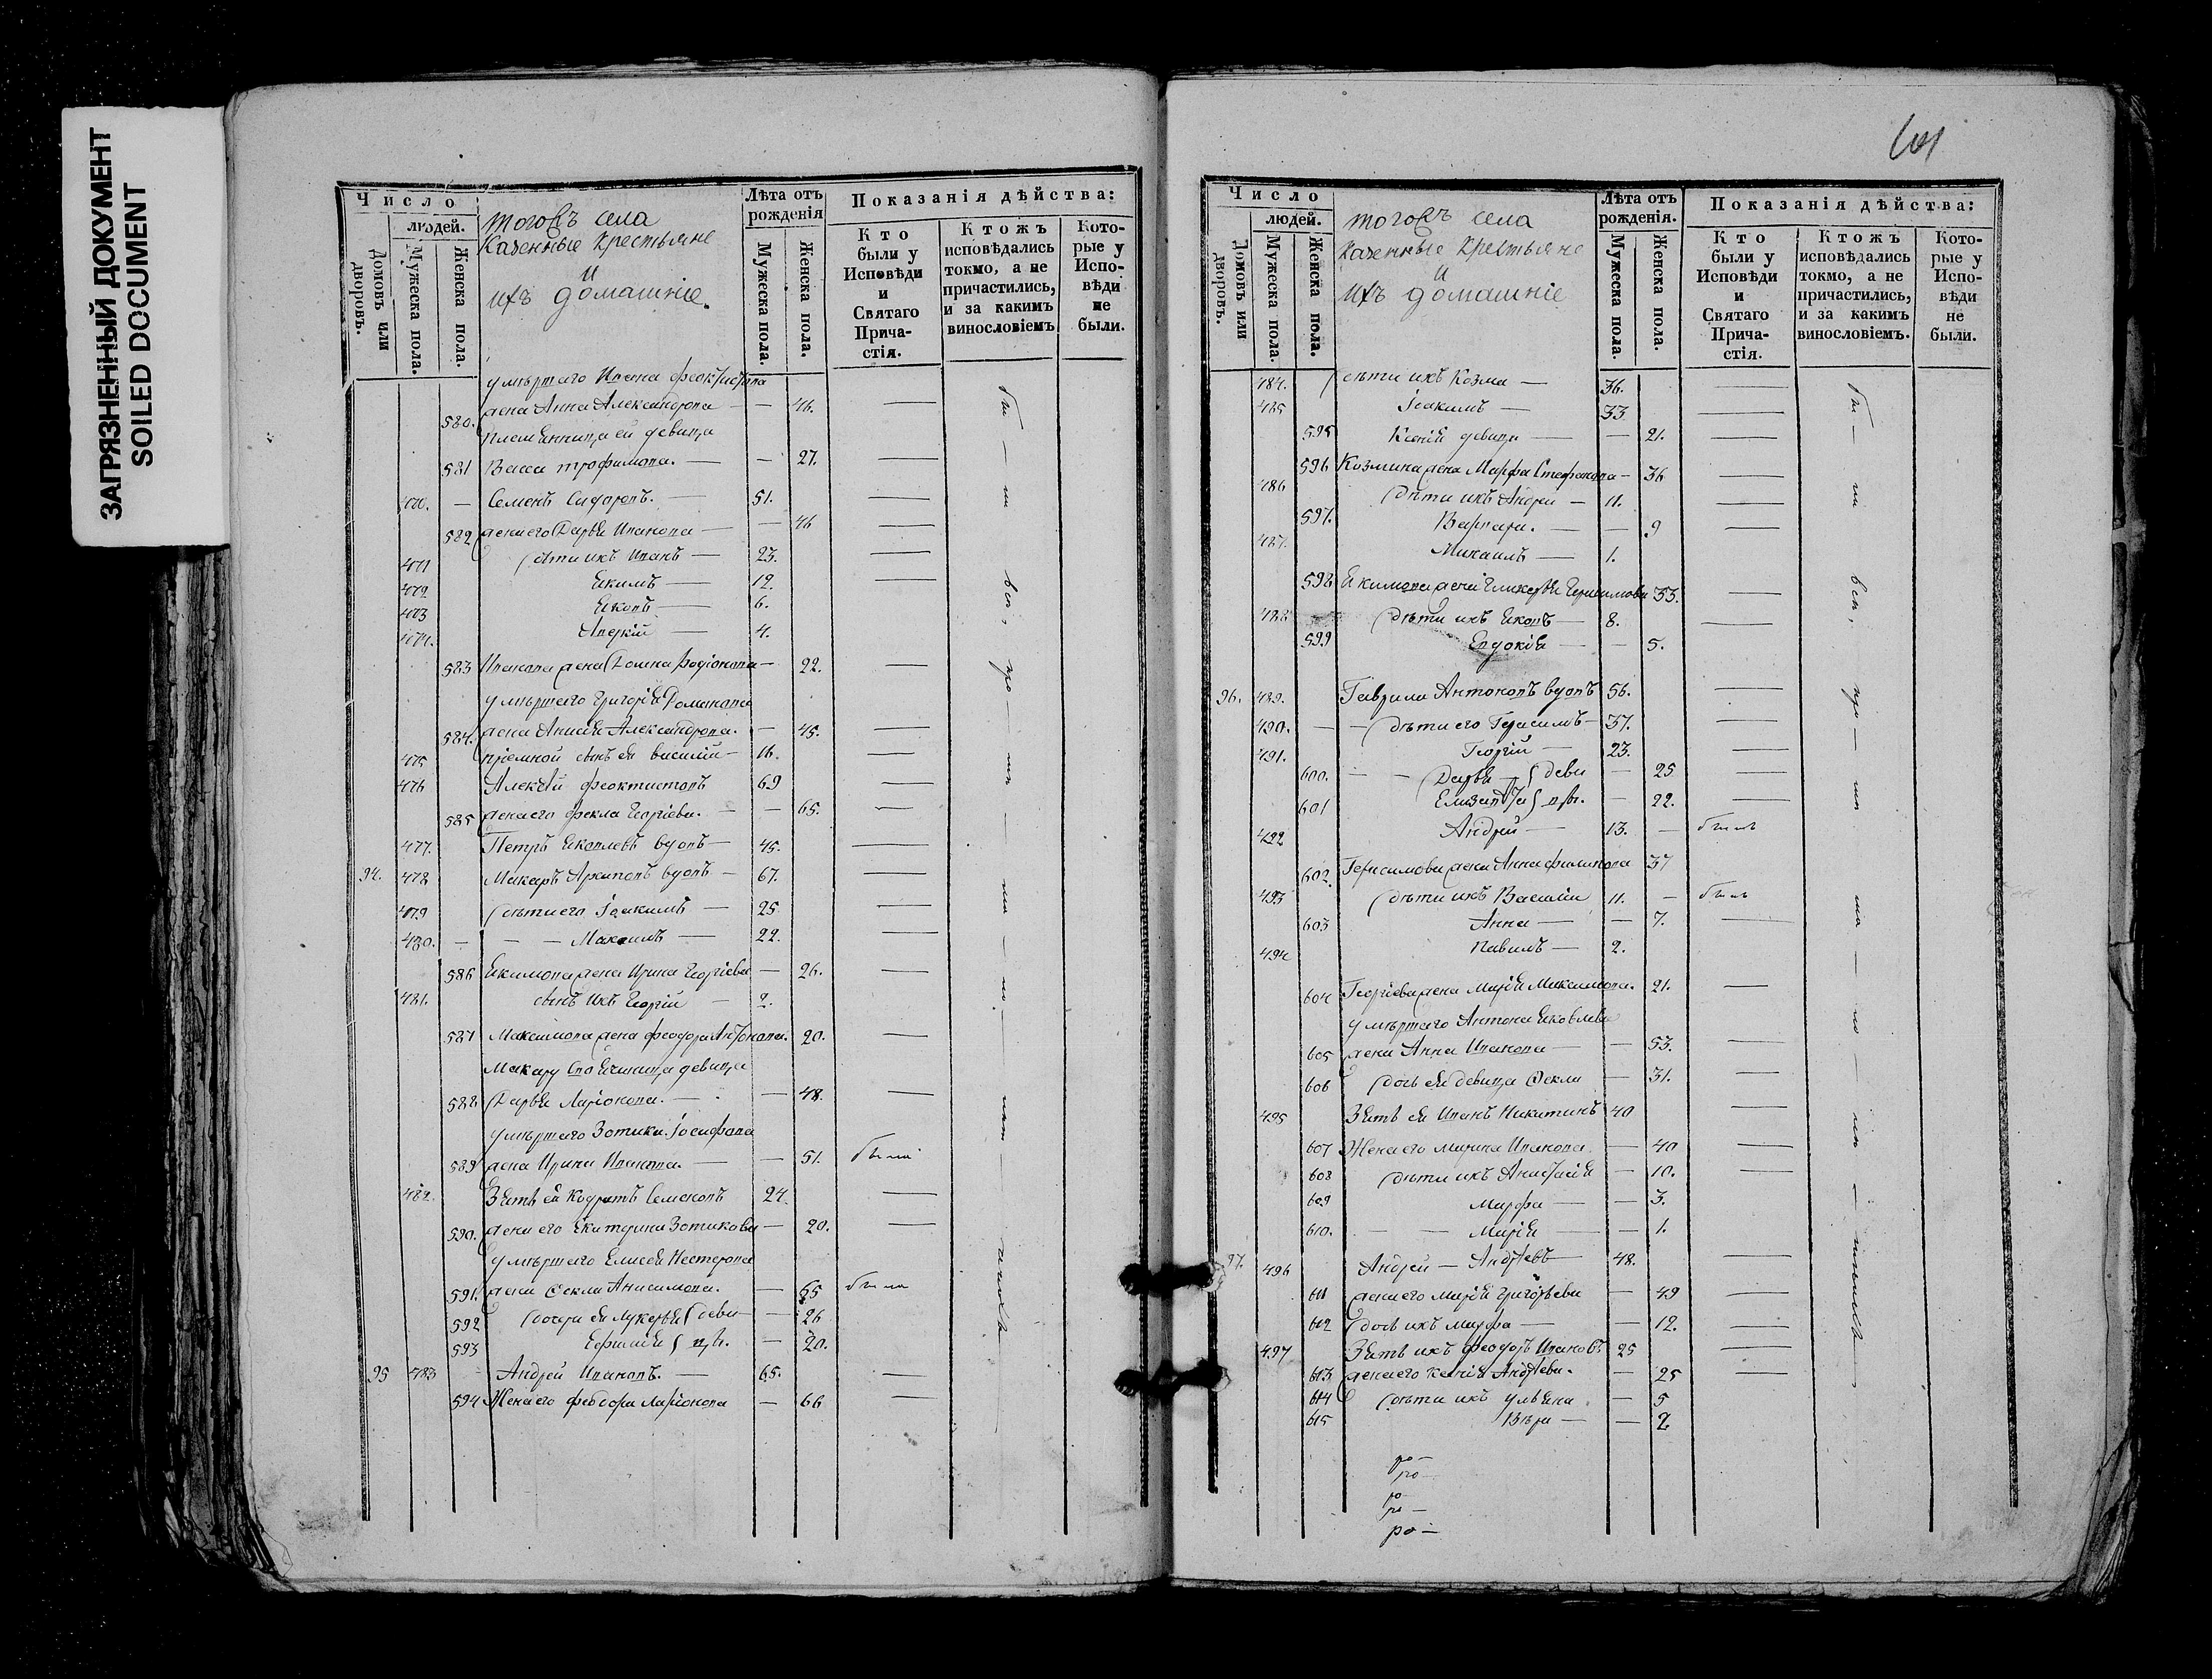 ЗАГРЯЗНЕННЫЙ ДОКУМЕНТ
SOILED DOCUMENT
Число
людей.
Домовъ или дворовъ.
Мужеска пола.
Женска пола.
тогожъ села
Казенные крестьяне
и
ихъ домашніе.
Лѣта отъ рожденія
Мужеска пола.
Женска пола.
Показанія дѣйства:
Кто были у Исповѣди и Святаго Прича-стія.
Ктожъ исповѣдались токмо, а не причастились, и за какимъ винословіемъ
Кото-рые у Испо-вѣди не были.
умершаго Ивана Феоктистова
580. жена Анна Александрова — — 46.
племянница ей девица
581 Васса трофимова. — — 27.
470. — Семенъ Сидоровъ. — 51.
582 жена его Дарья Иванова — — 46
471 дѣти ихъ Иванъ — 23.
472 Екимъ — 12.
473 Яковъ — 6.
474. Аверкій — 4.
583 Иванова жена Домна Родіонова — 22.
умершаго Григорія Романова
584. жена Анисья Александрова. — 45.
475 пріемной сынъ ея василій — 16.
476 Алексѣй феоктистовъ 69
585 жена его фекла Георгіева. — — 65.
477. Петръ Яковлевъ вдовъ — 45.
94. 478 Макаръ Архиповъ вдовъ — 67.
479 дѣти его Іоакимъ — 25
480. — — — Максимъ — 22.
586 Екимова жена Ирина Георгіева — 26.
481. сынъ ихъ Георгій — 2.
587 Максимова жена феодора Антонова. 20.
Макару своячиница девица
588 Дарья Ларіонова. — — 48.
умершаго Зотика Іосифова
589 жена Ирина Иванова. — — 51. была
482. Зять ей Кодратъ Семеновъ 24.
590. жена его Екатерина Зотикова — 20.
умершаго Елисея Нестерова
591. жена Фекла Анисимова. — 65 была
592 дочери ея Лукерья деви — 26
593 Ефимія цы. — 20.
95 483 Андрей Ивановъ. — 65.
594 Жена его феодора Ларіонова — 66
Число
людей.
Домовъ или дворовъ.
Мужеска пола.
Женска пола.
тогожъ села
Казенные крестьяне
и
ихъ домашніе
Лѣта отъ рожденія.
Мужеска пола.
Женска пола.
Показанія дѣйства:
Кто были у Исповѣди и Святаго Прича-стія.
Ктожъ исповѣдались токмо, а не причастились, и за какимъ винословіемъ.
Кото-рые у Испо-вѣди не были.
484. дѣти ихъ Козма — 36.
485 Іоакимъ — 33
595 Ксенія девица — — 21.
596 Козмина жена Марфа Стефанова — 36
486 дѣти ихъ Андрей — 11.
597. Варвара. — — 9
487. Михаилъ — 1.
598 Екимова жена Гликерья Герасимова 33.
488 дѣти ихъ Яковъ — 8.
599 Евдокія — — 5.
96. 489. Гаврила Антоновъ вдовъ 56.
490. — — дѣти его Герасимъ — 37.
491. Георгій — 23.
600. — — Дарья — деви — 25
601 Елизавета цы. — 22.
492 Андрей — 13. — былъ
602. Герасимова жена Анна филипова 37
493 дѣти ихъ Василій 11. — былъ
603 Анна — — 7.
494 Павилъ — 2.
604 Георгіева жена Марія Максимова. 21.
умершаго Антона Яковлева
605 жена Анна Иванова — — 53.
606 дочь ея девица Фекла — 31.
495 Зять ея Иванъ Никитинъ 40
607 Жена его марина Иванова — 40
608 дѣти ихъ Анастасія — 10.
609 Марфа — — 3.
610. — Марія — — 1.
97. 496 Андрей — Андреевъ 48.
611 жена его Марія Григорьева — 49
612 дочь ихъ Марфа — — 12.
497 Зять ихъ Феодоръ Ивановъ 25
613 жена его Ксенія Андреева. — 25
614 дѣти ихъ ульяна — 5
615 Вѣра — — 2